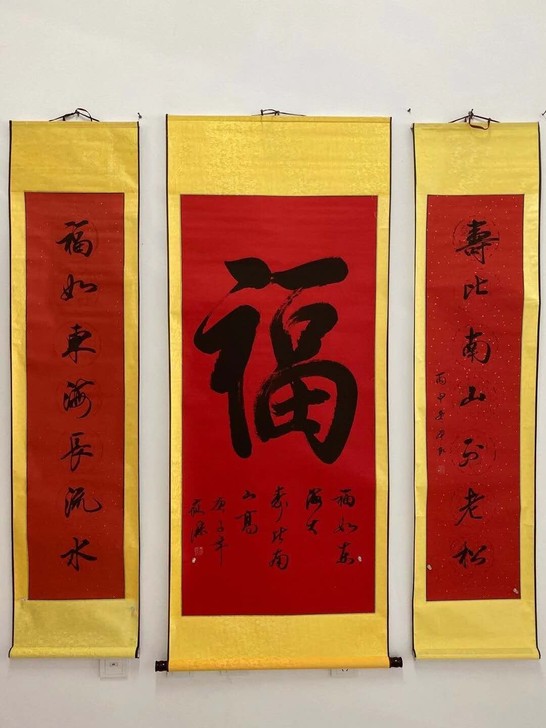 福如東海長流水
福
福如东
海大
寿比南
山高
庚子年
壽比南山不老松
丙申